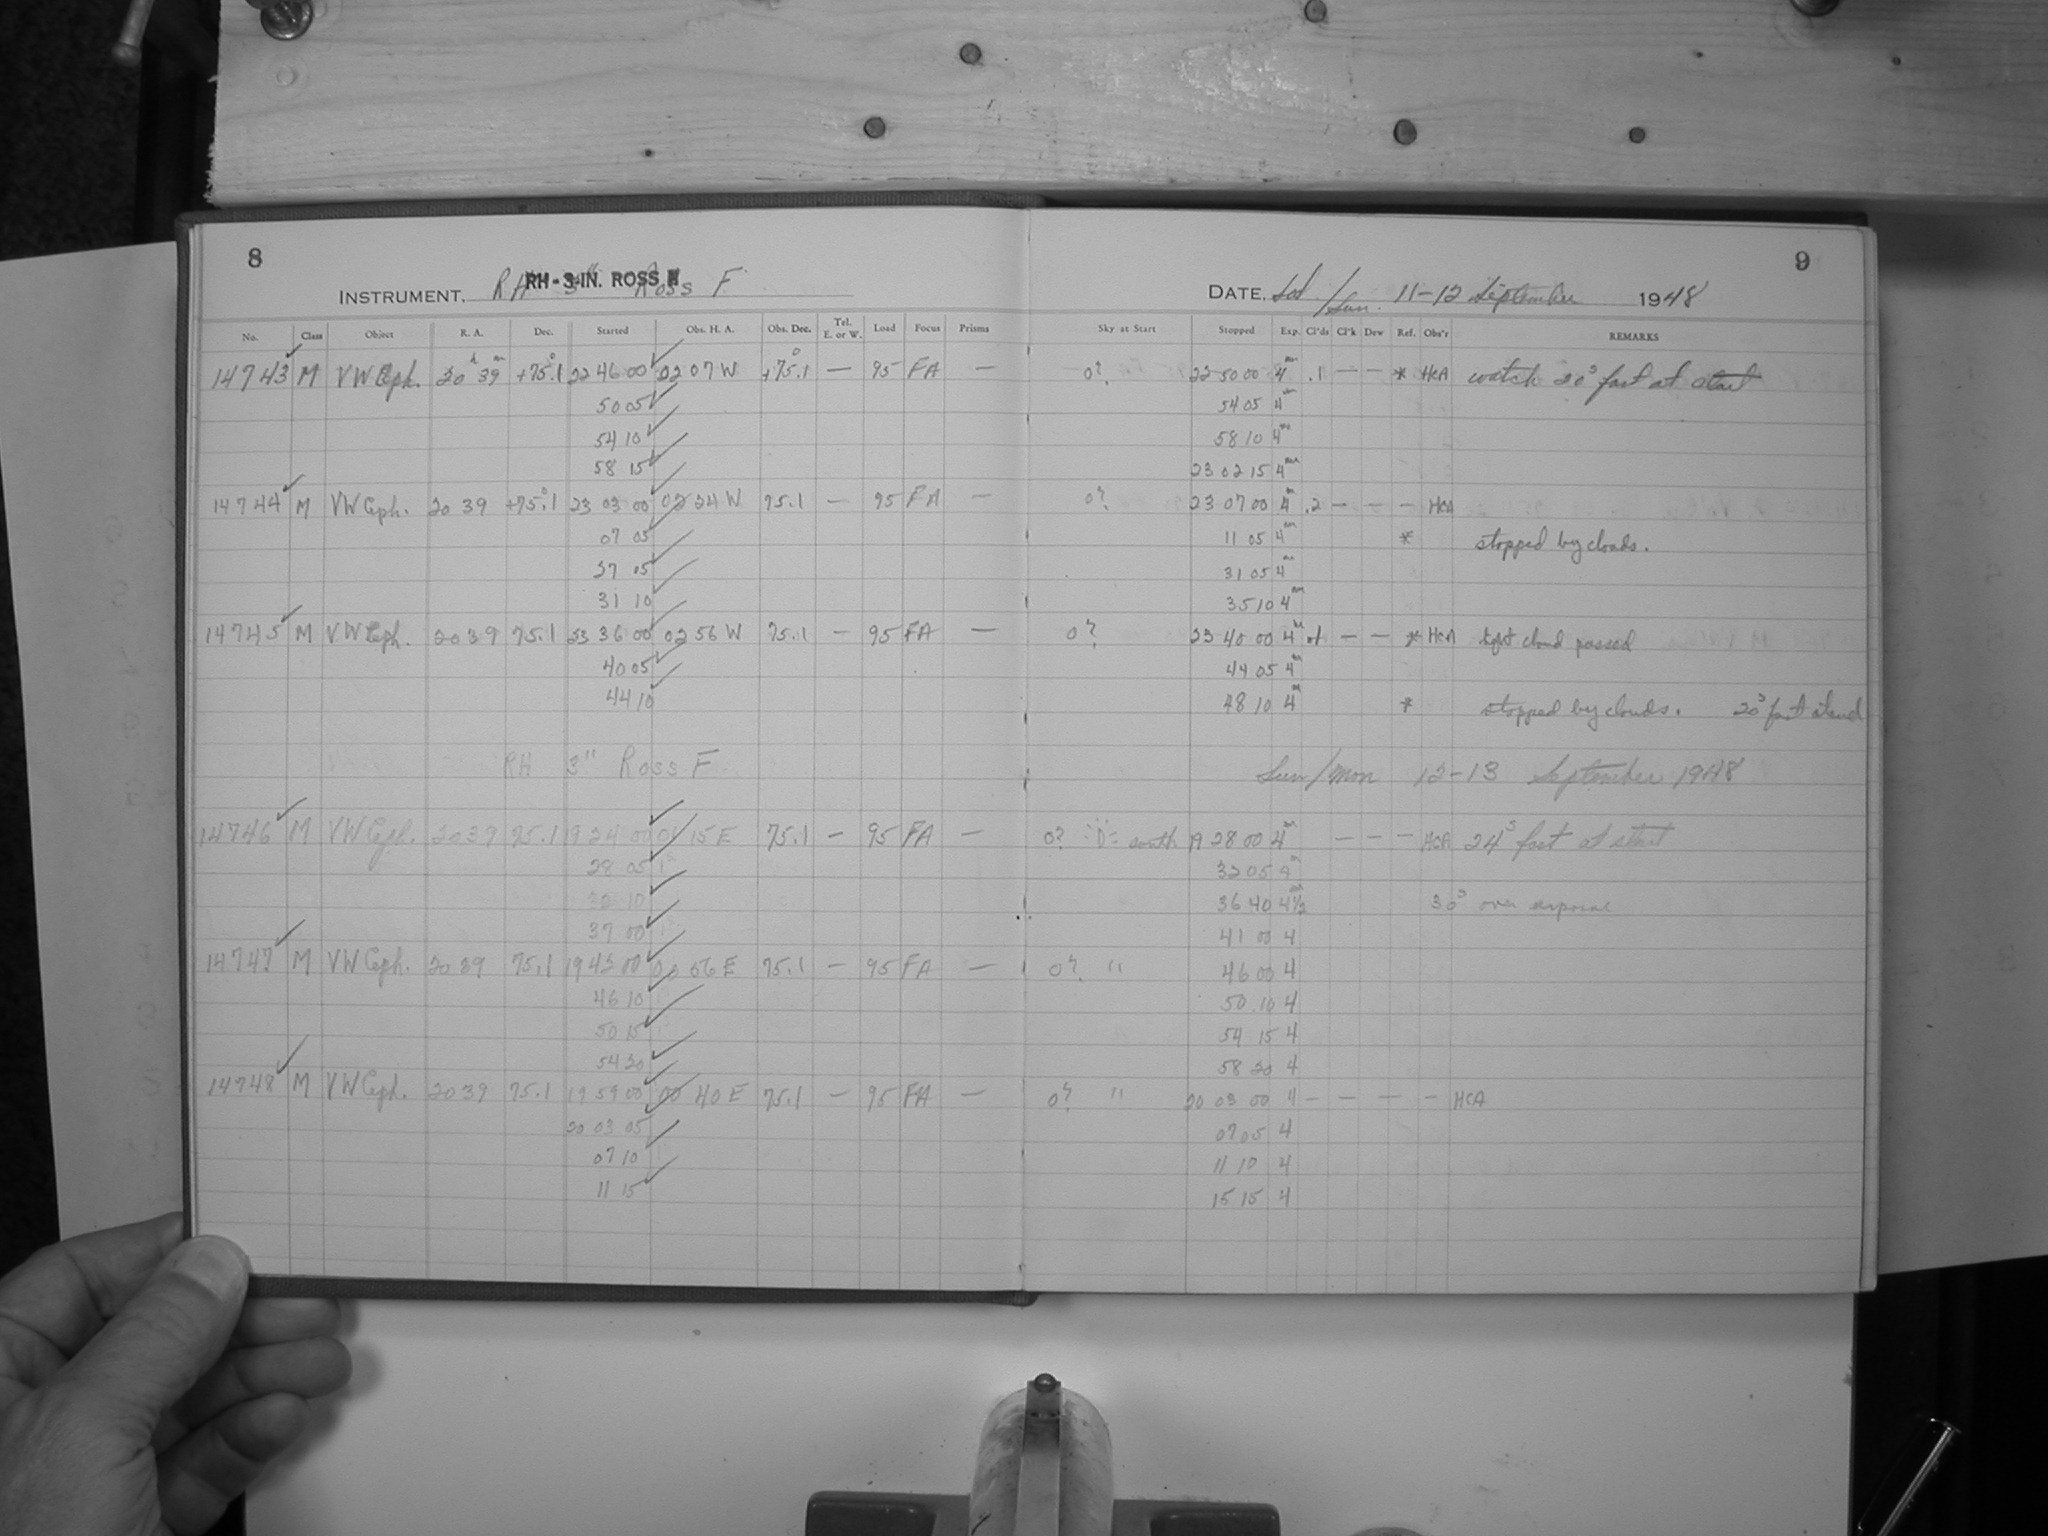 8
INSTRUMENT, RH 3" Ross F
RH-3-IN. ROSS
No. Class Object R. A. Dec. Started Obs. H. A. Obs. Dec. Tel. E. or W. Load Focus Prisms
14743 M VW Ceph. 20h 39m +75.°1 22 46 00 02 07 W +75.°1 — 95 FA —
50 05
54 10
58 15
14744 M VW Ceph. 20 39 +75.°1 23 03 00 02 24 W 75.1 — 95 FA —
07 05
27 05
31 10
14745 M VW Ceph. 20 39 75.1 23 36 00 02 56 W 75.1 — 95 FA —
40 05
44 10
RH 3" Ross F
14746 M VW Ceph. 20 39 75.1 19 24 00 01 15 E 75.1 — 95 FA —
28 05
32 10
37 00
14747 M VW Ceph. 20 39 75.1 19 42 00 00 56 E 75.1 — 95 FA —
46 10
50 15
54 20
14748 M VW Ceph. 20 39 75.1 19 59 00 00 40 E 75.1 — 95 FA —
20 03 05
07 10
11 15
9
DATE, Sat/Sun. 11-12 September 1948
Sky at Start Stopped Exp. Cl'ds Cl'k Dew Ref. Obs'r REMARKS
0? 22 50 00 4m .1 — — * HCA watch 20s fast at start
54 05 4m
58 10 4m
23 02 15 4m
0? 23 07 00 4m .2 — — — HCA
11 05 4m * stopped by clouds.
31 05 4m
35 10 4m
0? 23 40 00 4m — — * HCA light cloud passed
44 05 4m
48 10 4m * stopped by clouds. 20s fast at end
Sun/Mon 12-13 September 1948
0? south 19 28 00 4m — — — HCA 24s fast at start
32 05 4m
36 40 4½m 30s over exposure
41 00 4
0? " 46 00 4
50 10 4
54 15 4
58 20 4
0? " 20 03 00 4 — — — — HCA
07 05 4
11 10 4
15 15 4